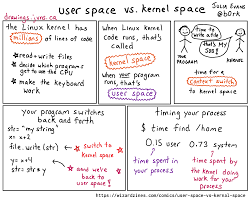 user space vs. kernel space
JULIA EVANS
@b0rk
drawings.jvns.ca
the Linux kernel has
millions of lines of code
★ read+write files
★ decide which programs
get to use the CPU
★ make the keyboard
work
when Linux kernel
code runs, that's
called
kernel space
when your program
runs, that's
user space
time for a
context switch
to kernel space!
your program switches
back and forth
str = "my string"
x = x+2
file.write(str)
y = x+4
str = str * y
switch to
kernel space
and we're
back to
user space!
timing your process
$ time find /home
0.15 user 0.73 system
time spent in
your process
time spent by
the kernel
doing work
for your process
https://wizardzines.com/comics/user-space-vs-kernel-space